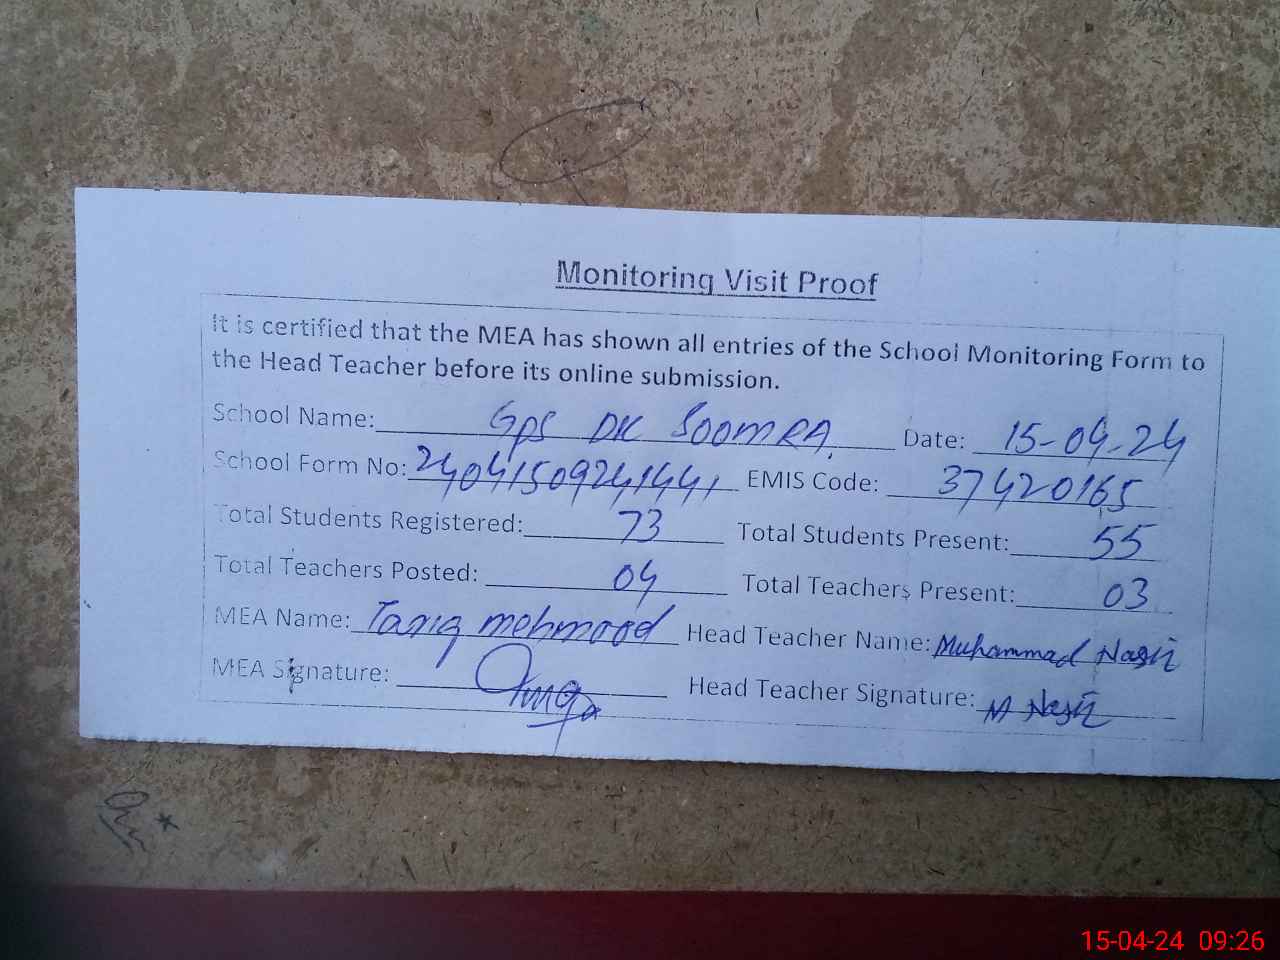 Monitoring Visit Proof
It is certified that the MEA has shown all entries of the School Monitoring Form to
the Head Teacher before its online submission.
School Name: Gps DK Soomra. Date: 15-04-24
School Form No: 24041509241441 EMIS Code: 37420165
Total Students Registered: 73 Total Students Present: 55
Total Teachers Posted: 04 Total Teachers Present: 03
MEA Name: Tariq mehmood Head Teacher Name: Muhammad Nasir
MEA Signature: Head Teacher Signature: M Nasir
15-04-24 09:26